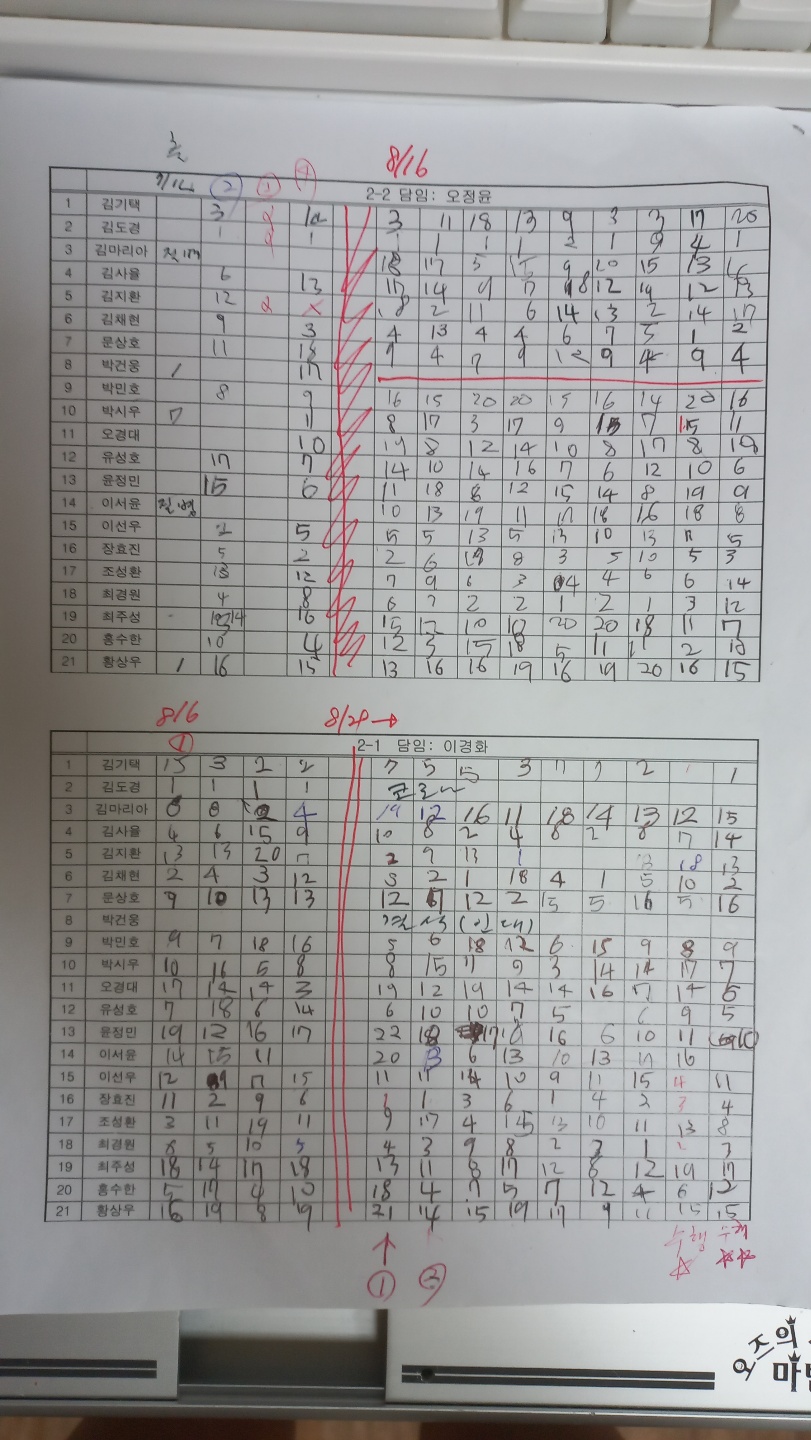 8/16
7/12 ② ③ ④ 2-2 담임: 오정윤
1 김기택 3 2 12 3 11 18 13 9 3 3 17 20
2 김도경 1 9 1 1 1 1 1 2 1 9 4 1
3 김마리아 18 17 5 15 9 20 15 13 16
4 김사율 6 13 17 14 9 7 18 12 14 12 13
5 김지환 12 2 X 8 2 11 6 14 13 2 14 17
6 김채현 9 3 4 13 4 4 6 7 5 1 2
7 문상호 11 18 9 4 7 9 12 9 4 9 4
8 박건웅 1 17
9 박민호 8 9 16 15 20 20 15 16 14 20 16
10 박시우 7 11 8 17 3 17 9 15 7 15 11
11 오경대 10 19 8 12 14 10 8 17 8 19
12 유성호 17 7 14 10 14 16 7 6 12 10 6
13 윤정민 15 6 11 18 8 12 15 14 8 19 9
14 이서윤 질병 10 13 19 11 17 18 16 18 8
15 이선우 2 5 5 5 13 5 13 10 13 11 5
16 장효진 5 2 2 6 19 8 3 5 10 5 3
17 조성환 13 12 7 9 6 3 4 4 6 6 14
18 최경원 4 8 6 7 2 2 1 2 1 3 12
19 최주성 14 16 15 12 10 10 20 20 18 11 7
20 홍수한 10 4 12 3 15 18 5 11 11 2 18
21 황상우 1 16 15 13 16 16 19 16 19 20 16 15
8/6 8/28→
① 2-1 담임: 이경화
1 김기택 15 3 2 2 7 5 5 3 7 7 2 1 1
2 김도경 1 1 1 1 코로나
3 김마리아 8 8 12 4 19 12 16 11 18 14 13 12 15
4 김사율 4 6 15 9 10 8 2 4 8 2 8 17 14
5 김지환 13 13 20 7 2 9 13 1 3 18 13
6 김채현 2 4 3 12 3 2 1 18 4 1 5 10 2
7 문상호 9 10 13 13 12 12 2 15 5 16 5 16
8 박건웅
9 박민호 9 7 18 16 5 6 18 12 6 15 9 8 9
10 박시우 10 16 5 8 8 15 11 9 3 14 14 17 7
11 오경대 17 14 14 3 19 12 19 14 14 16 7 14 6
12 유성호 7 18 6 14 6 10 10 7 5 6 9 5
13 윤정민 19 12 16 17 22 18 17 8 16 6 10 11
14 이서윤 14 15 11 20 13 6 13 10 13 17 16
15 이선우 12 7 15 11 17 14 10 9 11 15 14 11
16 장효진 11 2 9 6 1 1 3 6 1 4 2 3 4
17 조성환 3 11 19 11 9 17 4 15 13 10 11 13 8
18 최경원 8 5 10 5 4 3 9 8 2 3 1 2 3
19 최주성 18 14 17 18 13 11 8 17 12 8 12 19 17
20 홍수한 5 17 4 10 18 4 7 5 7 12 4 6 12
21 황상우 16 19 8 19 21 14 15 19 17 9 11 15 15
수행
① ②
오즈의
마법